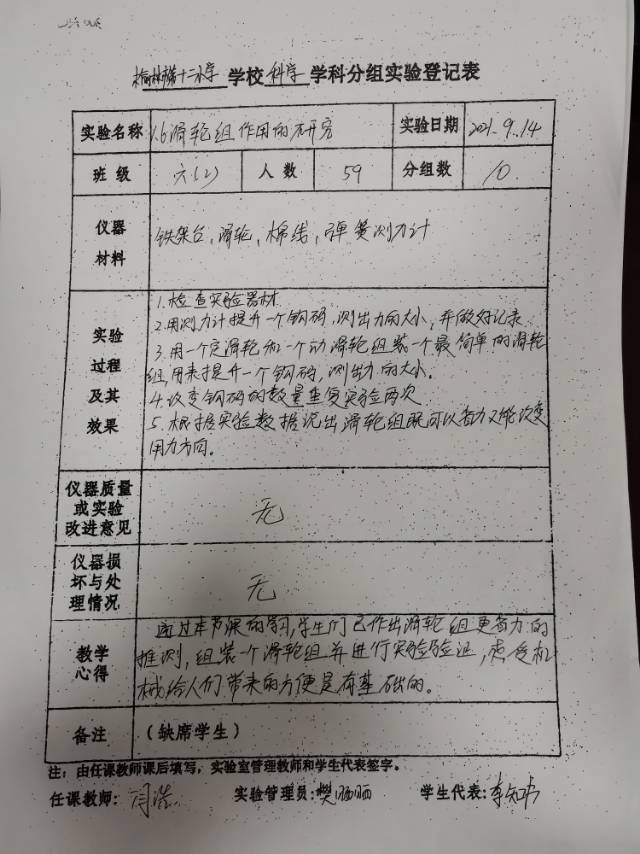 榆林市第十二小学 学校 科学 学科分组实验登记表
实验名称 1.6滑轮组作用的研究 实验日期 2021.9.14
班级 六(2) 人数 59 分组数 10
仪器材料 铁架台,滑轮,棉线,弹簧测力计
实验过程及其效果
1.检查实验器材
2.用测力计提升一个钩码,测出力的大小,并做好记录
3.用一个定滑轮和一个动滑轮组装一个最简单的滑轮
组,用来提升一个钩码,测出力的大小。
4.改变钩码的数量重复实验两次
5.根据实验数据说出滑轮组既可以省力又能改变
用力方向。
仪器质量或实验改进意见 无
仪器损坏与处理情况 无
教学心得
通过本节课的学习,学生们已作出滑轮组更省力的
推测,组装一个滑轮组并进行实验验证,感受机
械给人们带来的方便是有基础的。
备注 (缺席学生)
注:由任课教师课后填写,实验室管理教师和学生代表签字。
任课教师: 闫浩 实验管理员:樊晒晒 学生代表:李